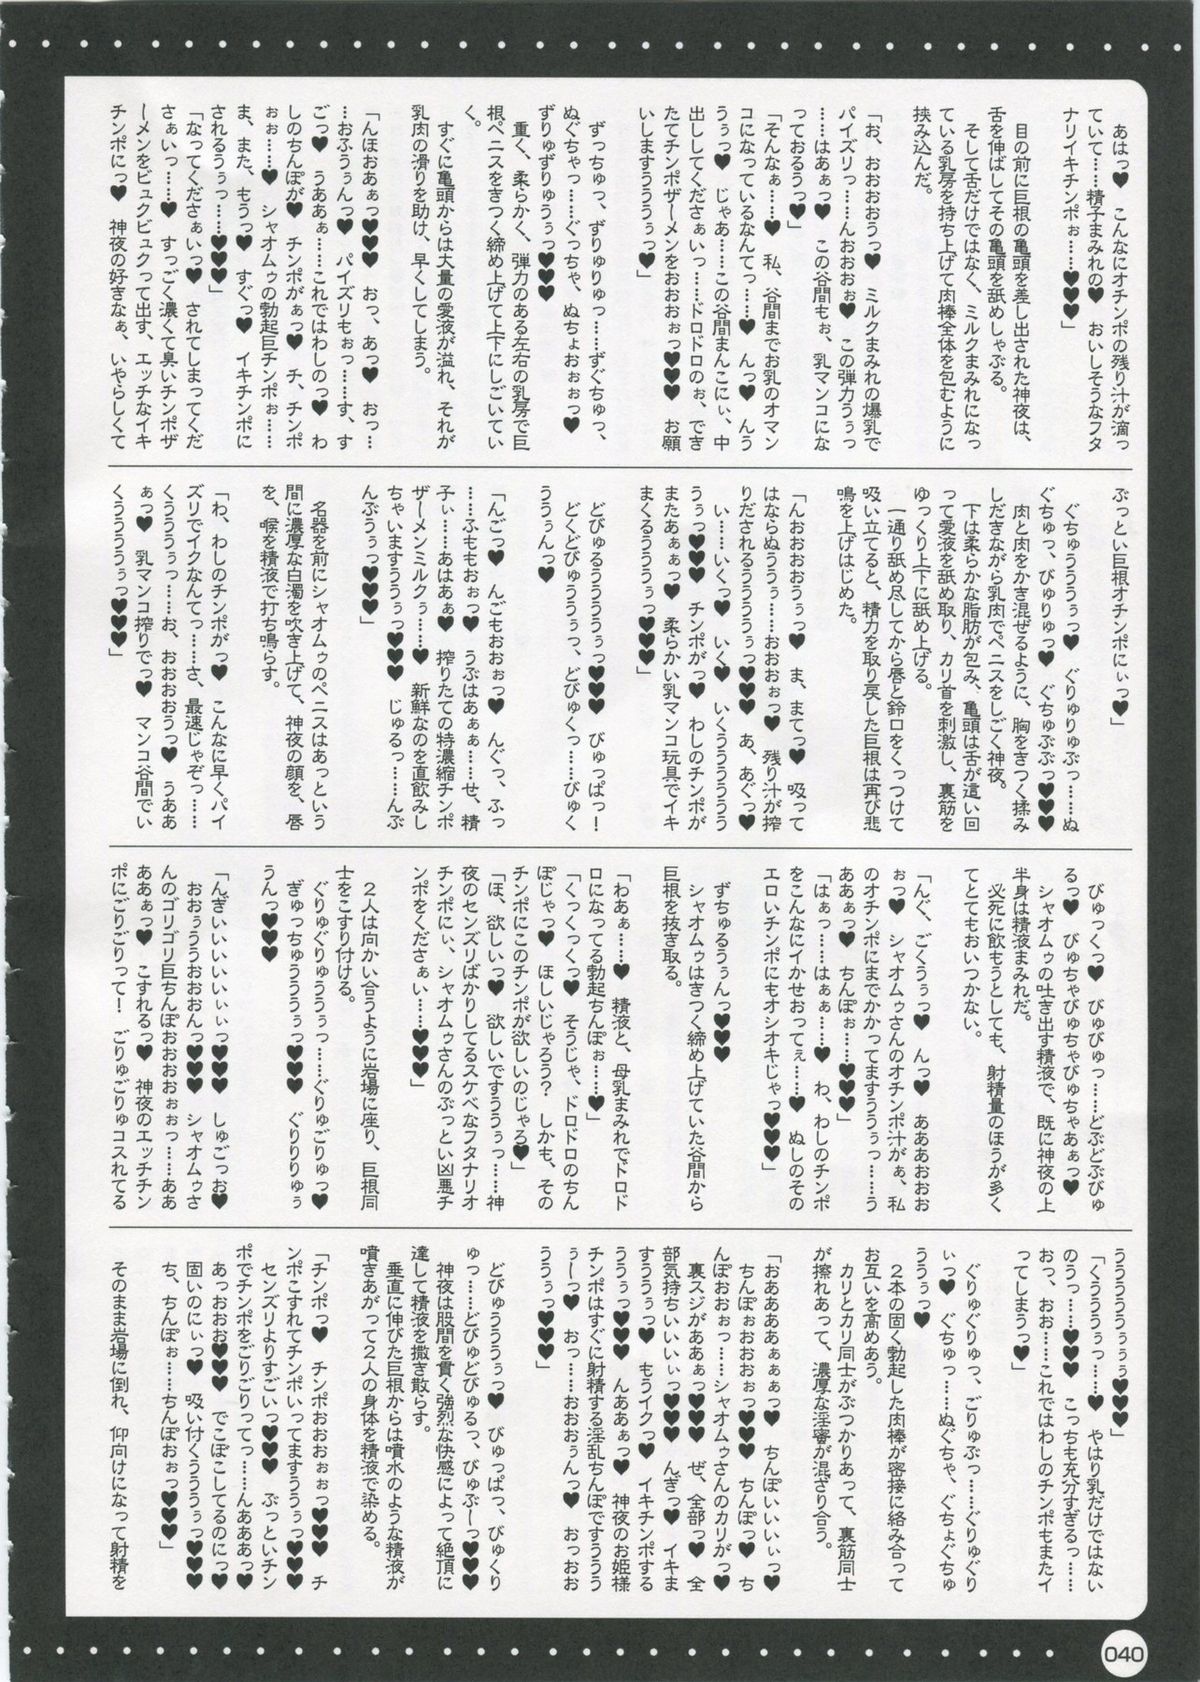 あはっ♥　こんなにオチンポの残り汁が滴っ
ていて……精子まみれの♥　おいしそうなフタ
ナリイキチンポぉ……♥♥♥」
目の前に巨根の亀頭を差し出された神夜は、
舌を伸ばしてその亀頭を舐めしゃぶる。
そして舌だけではなく、ミルクまみれになっ
ている乳房を持ち上げて肉棒全体を包むように
挟み込んだ。
「お、おおおおうっ♥　ミルクまみれの爆乳で
パイズリっ……んおおおぉ♥　この弾力うぅっ
……はあぁっ♥　この谷間もぉ、乳マンコにな
っておるうっ♥」
「そんなぁ……♥　私、谷間までお乳のオマン
コになっているなんてっ……♥　んっ♥　んう
うぅっ♥　じゃあ……この谷間まんこにぃ、中
出ししてくださぁいっ……ドロドロのぉ、でき
たてチンポザーメンをおおおぉっ♥♥♥　お願
いしますうううぅっ♥」
ずっちゅっ、ずりゅりゅっ……ずぐちゅっ、
ぬぐちゃっ……ぐっちゃ、ぬちょおぉぉっ♥
ずりゅずりゅうぅっ♥♥♥
重く、柔らかく、弾力のある左右の乳房で巨
根ペニスをきつく締め上げて上下にしごいてい
く。
すぐに亀頭からは大量の愛液が溢れ、それが
乳肉の滑りを助け、早くしてしまう。
「んほおあぁっ♥♥♥　おっ、あっ♥　おっ…
…おふうぅんっ♥　パイズリもぉっ……す、す
ごっ♥　うああぁ……これではわしのっ♥　わ
しのちんぽが♥　チンポがぁっ♥　チ、チンポ
おぉ……♥　シャオムゥの勃起巨チンポぉ……
ま、また、もうっ♥　すぐっ♥　イキチンポに
されるうぅっ……♥♥♥」
「なってくださぁいっ♥　されてしまってくだ
さぁいっ……♥　すっごく濃くて臭いチンポザ
ーメンをビュクビュクって出す、エッチなイキ
チンポにっ♥　神夜の好きなぁ、いやらしくて
ぶっとい巨根オチンポにぃっ♥」
ぐちゅうううぅっ♥　ぐりゅりゅぶっ……ぬ
ぐちゅっ、びゅりゅっ♥　ぐちゅぶぶっ♥♥♥
肉と肉をかき混ぜるように、胸をきつく揉み
しだきながら乳肉でペニスをしごく神夜。
下は柔らかな脂肪が包み、亀頭は舌が這い回
って愛液を舐め取り、カリ首を刺激し、裏筋を
ゆっくり上下に舐め上げる。
一通り舐め尽してから唇と鈴口をくっつけて
吸い立てると、精力を取り戻した巨根は再び悲
鳴を上げはじめた。
「んおおおおうぅっ♥　ま、まてっ♥　吸って
はならぬううぅ……おおおぉっ♥　残り汁が搾
りだされるうううううぅっ♥♥♥　あ、あぐっ♥
い……いくっ♥　いく♥　いくうううううう
うぅっ♥♥♥　チンポがっ♥　わしのチンポが
またあぁぁっ♥　柔らかい乳マンコ玩具でイキ
まくるうううぅっ♥♥♥♥」
どびゅるうううううぅっ♥♥♥　びゅっぱっ！
どくどびゅううぅっ、どびゅくっ……びゅく
ううぅんっ♥
「んごっ♥　んごもおおぉっ♥　んぐっ、ふっ
……ふももおぉっ♥　うぶはあぁぁ……せ、精
子ぃ……あはあぁ♥　搾りたての特濃縮チンポ
ザーメンミルクぅ……♥　新鮮なのを直飲みし
ちゃいますううぅっ♥♥♥　じゅるっ……んぶ
んぶうぅっ♥♥♥♥」
名器を前にシャオムゥのペニスはあっという
間に濃厚な白濁を吹き上げて、神夜の顔を、唇
を、喉を精液で打ち鳴らす。
「わ、わしのチンポがっ♥　こんなに早くパイ
ズリでイクなんてっ……さ、最速じゃぞっ……
くうううぅっ……お、おおおおうっ♥　うああ
ぁっ♥　乳マンコ搾りでっ♥　マンコ谷間でい
くうううううぅっ♥♥♥♥」
びゅっくっ♥　びゅびゅっ……どぶどぶびゅ
るっ♥　びゅちゃびゅちゃびゅちゃあぁっ♥
シャオムゥの吐き出す精液で、既に神夜の上
半身は精液まみれだ。
必死に飲もうとしても、射精量のほうが多く
てとてもおいつかない。
「んぐ、ごくうぅっ♥　んっ♥　ああああおお
ぉっ♥　シャオムゥさんのオチンポ汁がぁ、私
のオチンポにまでかかってますううぅっ……う
ああぁっ♥　ちんぽぉ……♥♥♥」
「はぁっ……はぁぁ……♥　わ、わしのチンポ
をこんなにイかせおってぇ……　ぬしのその
エロいチンポにもオシオキじゃっ♥♥♥」
ずちゅるうぅんっ♥♥♥
シャオムゥはきつく締め上げていた谷間から
巨根を抜き取る。
「わあぁ……♥　精液と、母乳まみれでドロド
ロになってる勃起ちんぽぉ……♥」
「くっくっくっ♥　そうじゃ、ドロドロのちん
ぽじゃっ♥　ほしいじゃろう？　しかも、その
チンポにこのチンポが欲しいのじゃろ♥」
「ほ、欲しいっ♥　欲しいですううぅっ……神
夜のセンズリばかりしてるスケベなフタナリオ
チンポにぃ、シャオムゥさんのぶっとい凶悪チ
ンポをくださぁい……♥♥♥」
２人は向かい合うように岩場に座り、巨根同
士をこすり付ける。
ぐりゅぐりゅううぅっ……ぐりゅごりゅっ♥
ぎゅっちゅうううぅっ♥♥♥　ぐりりりゅぅ
うんっ♥♥♥
「んぎぃいいいいぃぃっ♥♥♥　しゅごっお♥
おおぅううおおおんっ♥♥♥　シャオムゥさ
んのゴリゴリ巨ちんぽおおおおぉぉっ……ああ
ああぁっ♥　こすれるっ♥　神夜のエッチチン
ポにごりごりって！　ごりゅごりゅコスれてる
ううううぅぅぅぅ♥♥♥」
「くうううぅっ……♥　やはり乳だけではない
のうっ……♥♥♥　こっちも充分すぎるっ……
おっ、おお……これではわしのチンポもまたイ
ってしまうっ♥」
ぐりゅぐりゅっ、ごりゅぶっ……ぐりゅぐり
ぃっ♥　ぐちゅっ……ぬぐちゃ、ぐちょぐちゅ
ううぅっ♥
２本の固く勃起した肉棒が密接に絡み合って
お互いを高めあう。
カリとカリ同士がぶつかりあって、裏筋同士
が擦れあって、濃厚な淫蜜が混ざり合う。
「おああああぁぁぁっ♥　ちんぽいいいぃっ♥
ちんぽぉおおおぉっ♥♥♥　ちんぽっ♥　ち
んぽおおぉっ……シャオムゥさんのカリがっ♥
裏スジがああぁっ♥♥♥　ぜ、全部っ♥　全
部気持ちいいいぃっ♥♥♥♥　んぎっ♥　イキま
すうううぅっ♥　もうイクっ♥　イキチンポする
ううぅっ♥♥♥　んああぁっ♥　神夜のお姫様
チンポはすぐに射精する淫乱ちんぽですううう
ぅーっっ♥　おっ……おおおぅんっ♥　おっおお
ううぅっ♥♥♥」
どびゅうううぅっ♥　びゅっぱっ、びゅくり
ゅっ……どびゅどびゅるっ、びゅぶーっ♥♥♥
神夜は股間を貫く強烈な快感によって絶頂に
達して精液を撒き散らす。
垂直に伸びた巨根からは噴水のような精液が
噴きあがって２人の身体を精液で染める。
「チンポっ♥　チンポおおおぉぉっ♥♥♥　チ
ンポこすれてチンポいってますううぅっ♥♥♥
センズリよりすごいっ♥♥♥　ぶっといチン
ポでチンポをごりごりってっ……んあああっ♥
あっおおおっ♥♥　でこぼこしてるのにっ♥
固いのにぃっ♥　吸い付くうううぅっ♥♥♥
ち、ちんぽぉ……ちんぽおぉっ♥♥♥」
そのまま岩場に倒れ、仰向けになって射精を
040